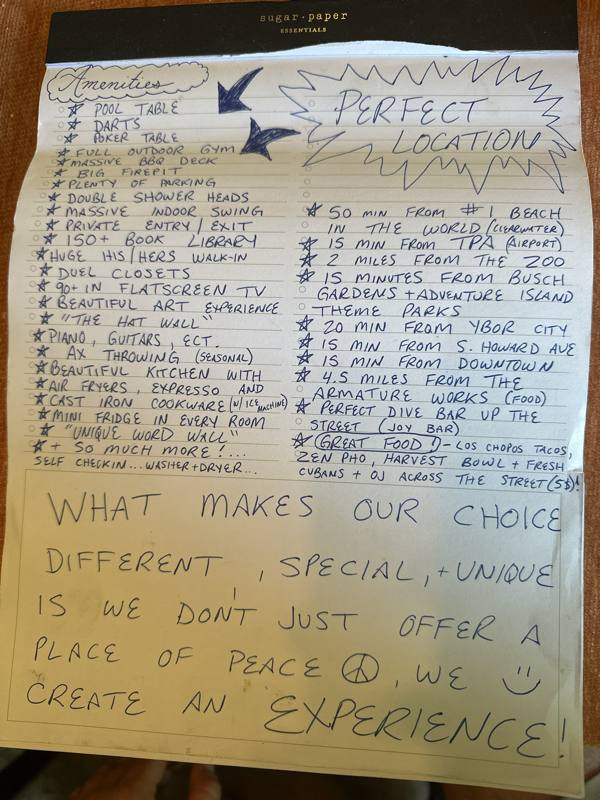 sugar·paper
ESSENTIALS
Amenities
POOL TABLE
DARTS
POKER TABLE
FULL OUTDOOR GYM
MASSIVE BBQ DECK
BIG FIREPIT
PLENTY OF PARKING
DOUBLE SHOWER HEADS
MASSIVE INDOOR SWING
PRIVATE ENTRY / EXIT
150+ BOOK LIBRARY
HUGE HIS/HERS WALK-IN
DUEL CLOSETS
90+ IN FLATSCREEN TV
BEAUTIFUL ART EXPERIENCE
"THE HAT WALL"
PIANO, GUITARS, ECT.
AX THROWING (SEASONAL)
BEAUTIFUL KITCHEN WITH
AIR FRYERS, EXPRESSO AND
CAST IRON COOKWARE (W/ ICE MACHINE)
MINI FRIDGE IN EVERY ROOM
"UNIQUE WORD WALL"
+ SO MUCH MORE!...
SELF CHECKIN... WASHER+DRYER...
PERFECT
LOCATION
50 MIN FROM #1 BEACH
IN THE WORLD (CLEARWATER)
15 MIN FROM TPA (AIRPORT)
2 MILES FROM THE ZOO
15 MINUTES FROM BUSCH
GARDENS + ADVENTURE ISLAND
THEME PARKS
20 MIN FROM YBOR CITY
15 MIN FROM S. HOWARD AVE
15 MIN FROM DOWNTOWN
4.5 MILES FROM THE
ARMATURE WORKS (FOOD)
PERFECT DIVE BAR UP THE
STREET (JOY BAR)
(GREAT FOOD!) - LOS CHOPOS TACOS,
ZEN PHO, HARVEST BOWL + FRESH
CUBANS + OJ ACROSS THE STREET (5$)!
WHAT MAKES OUR CHOICE
DIFFERENT, SPECIAL, + UNIQUE
IS WE DON'T JUST OFFER A
PLACE OF PEACE ☮, WE
CREATE AN EXPERIENCE!